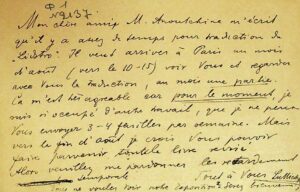 ф 1
№ 9137.
Mon cher ami M. Anoutchine m'écrit
qu'il y a assez de temps pour traduction de
Il veut arriver à Paris au mois
d'août (vers le 10-15) voir Vous et regarder
avec Vous la traduction, au moins une partie.
Ça m'est très agréable car pour le moment, je
suis si occupé d'autre travail, que je ne peux
Vous envoyer 3-4 feuilles par semaine. Mais
vers le fin d'août je crois Vous pouvoir
faire parvenir tout le livre
Alors veuillez me pardonner les
Tout à Vous
Vous ne voulez voir notre exposition?